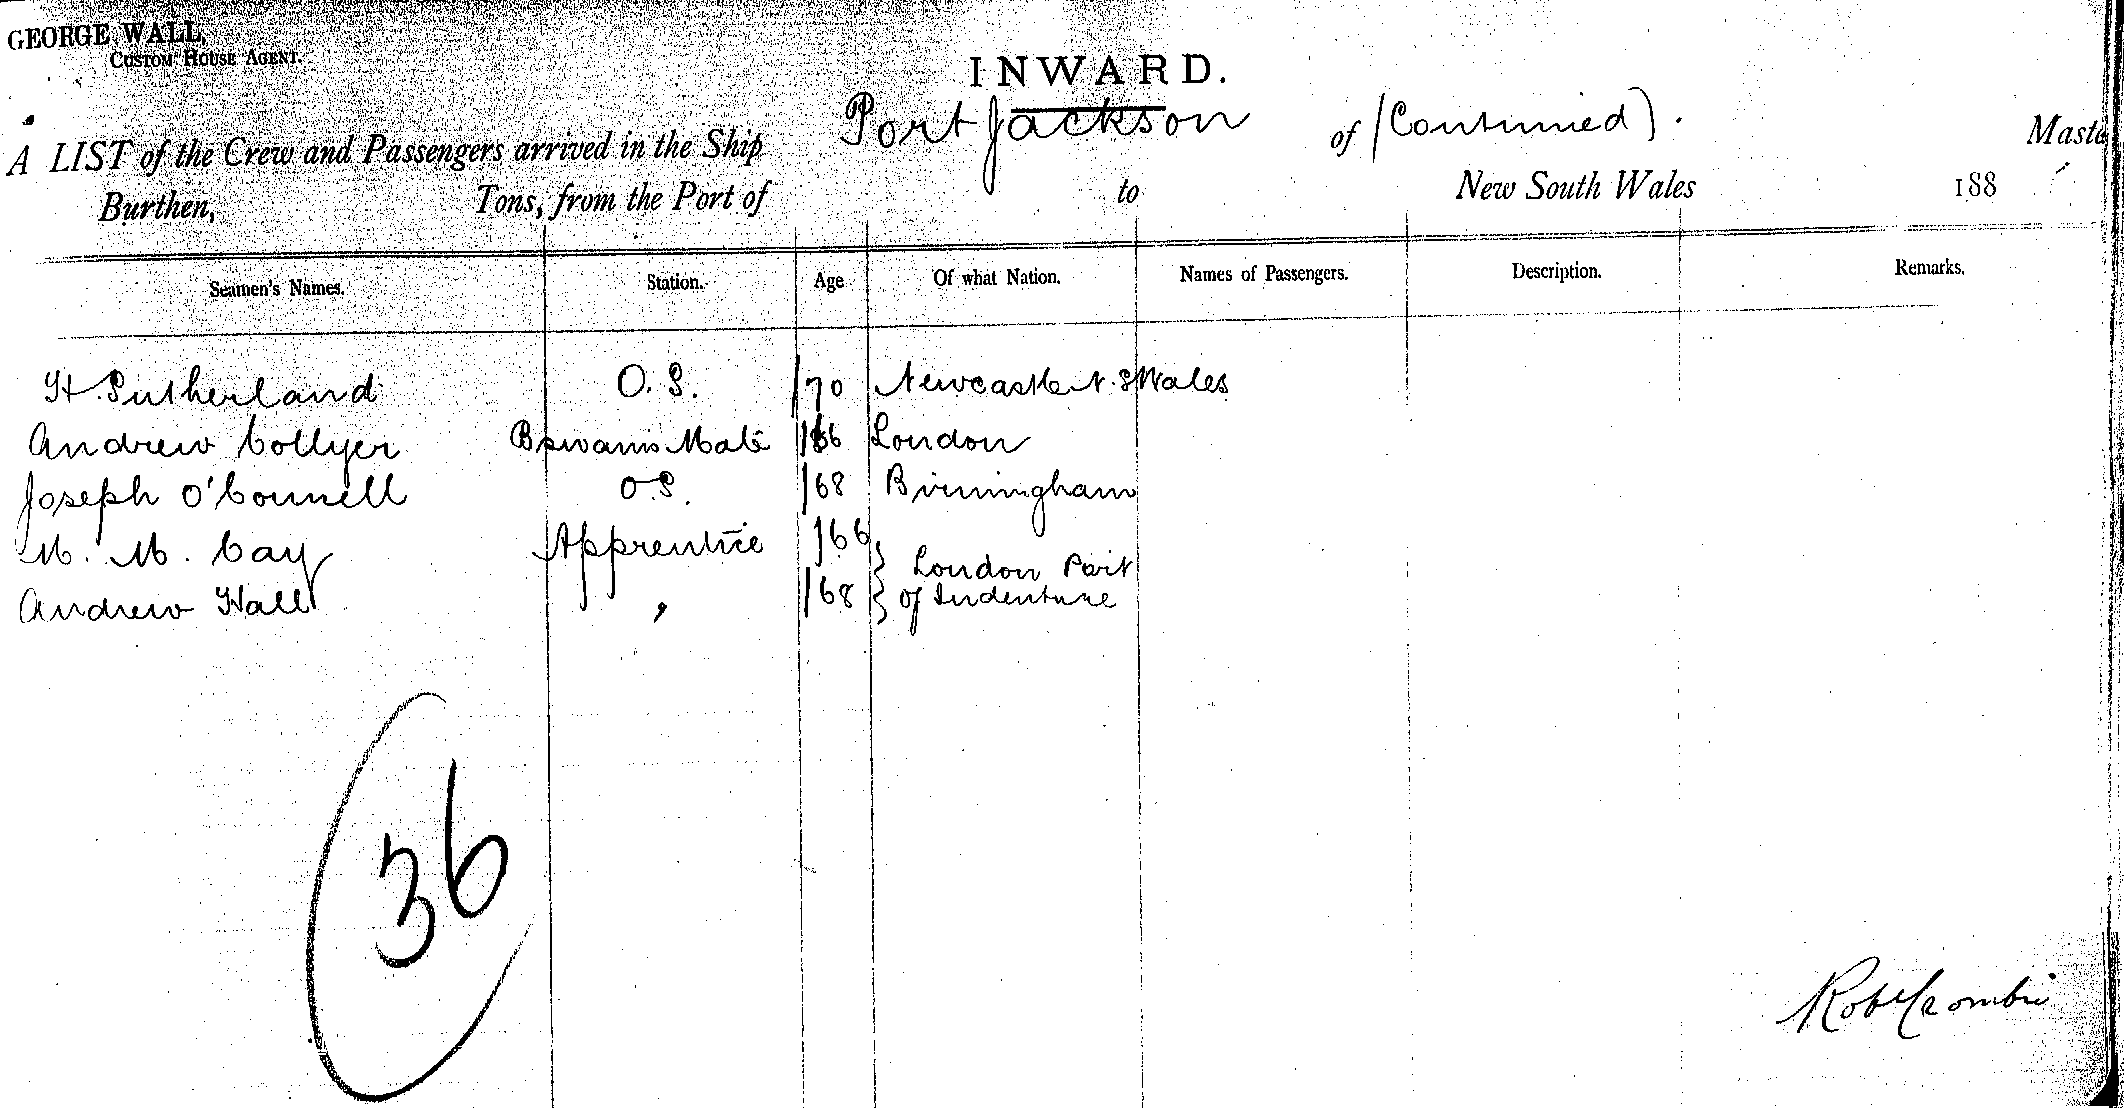 GEORGE WALL,
CUSTOM HOUSE AGENT.
INWARD.
A LIST of the Crew and Passengers arrived in the Ship Port Jackson of (Continued). Maste
Burthen, Tons, from the Port of to New South Wales 188
Seamen's Names. Station. Age Of what Nation. Names of Passengers. Description. Remarks.
H. Sutherland O. S. /70 Newcastle N. S Wales
Andrew Collyer Bswains Mate /66 London
Joseph O'Connell O.S. /68 Birmingham
M. M. Cay Apprentice /66 } London Part
Andrew Hall " /68 } of Indenture
36
Robt Crombie